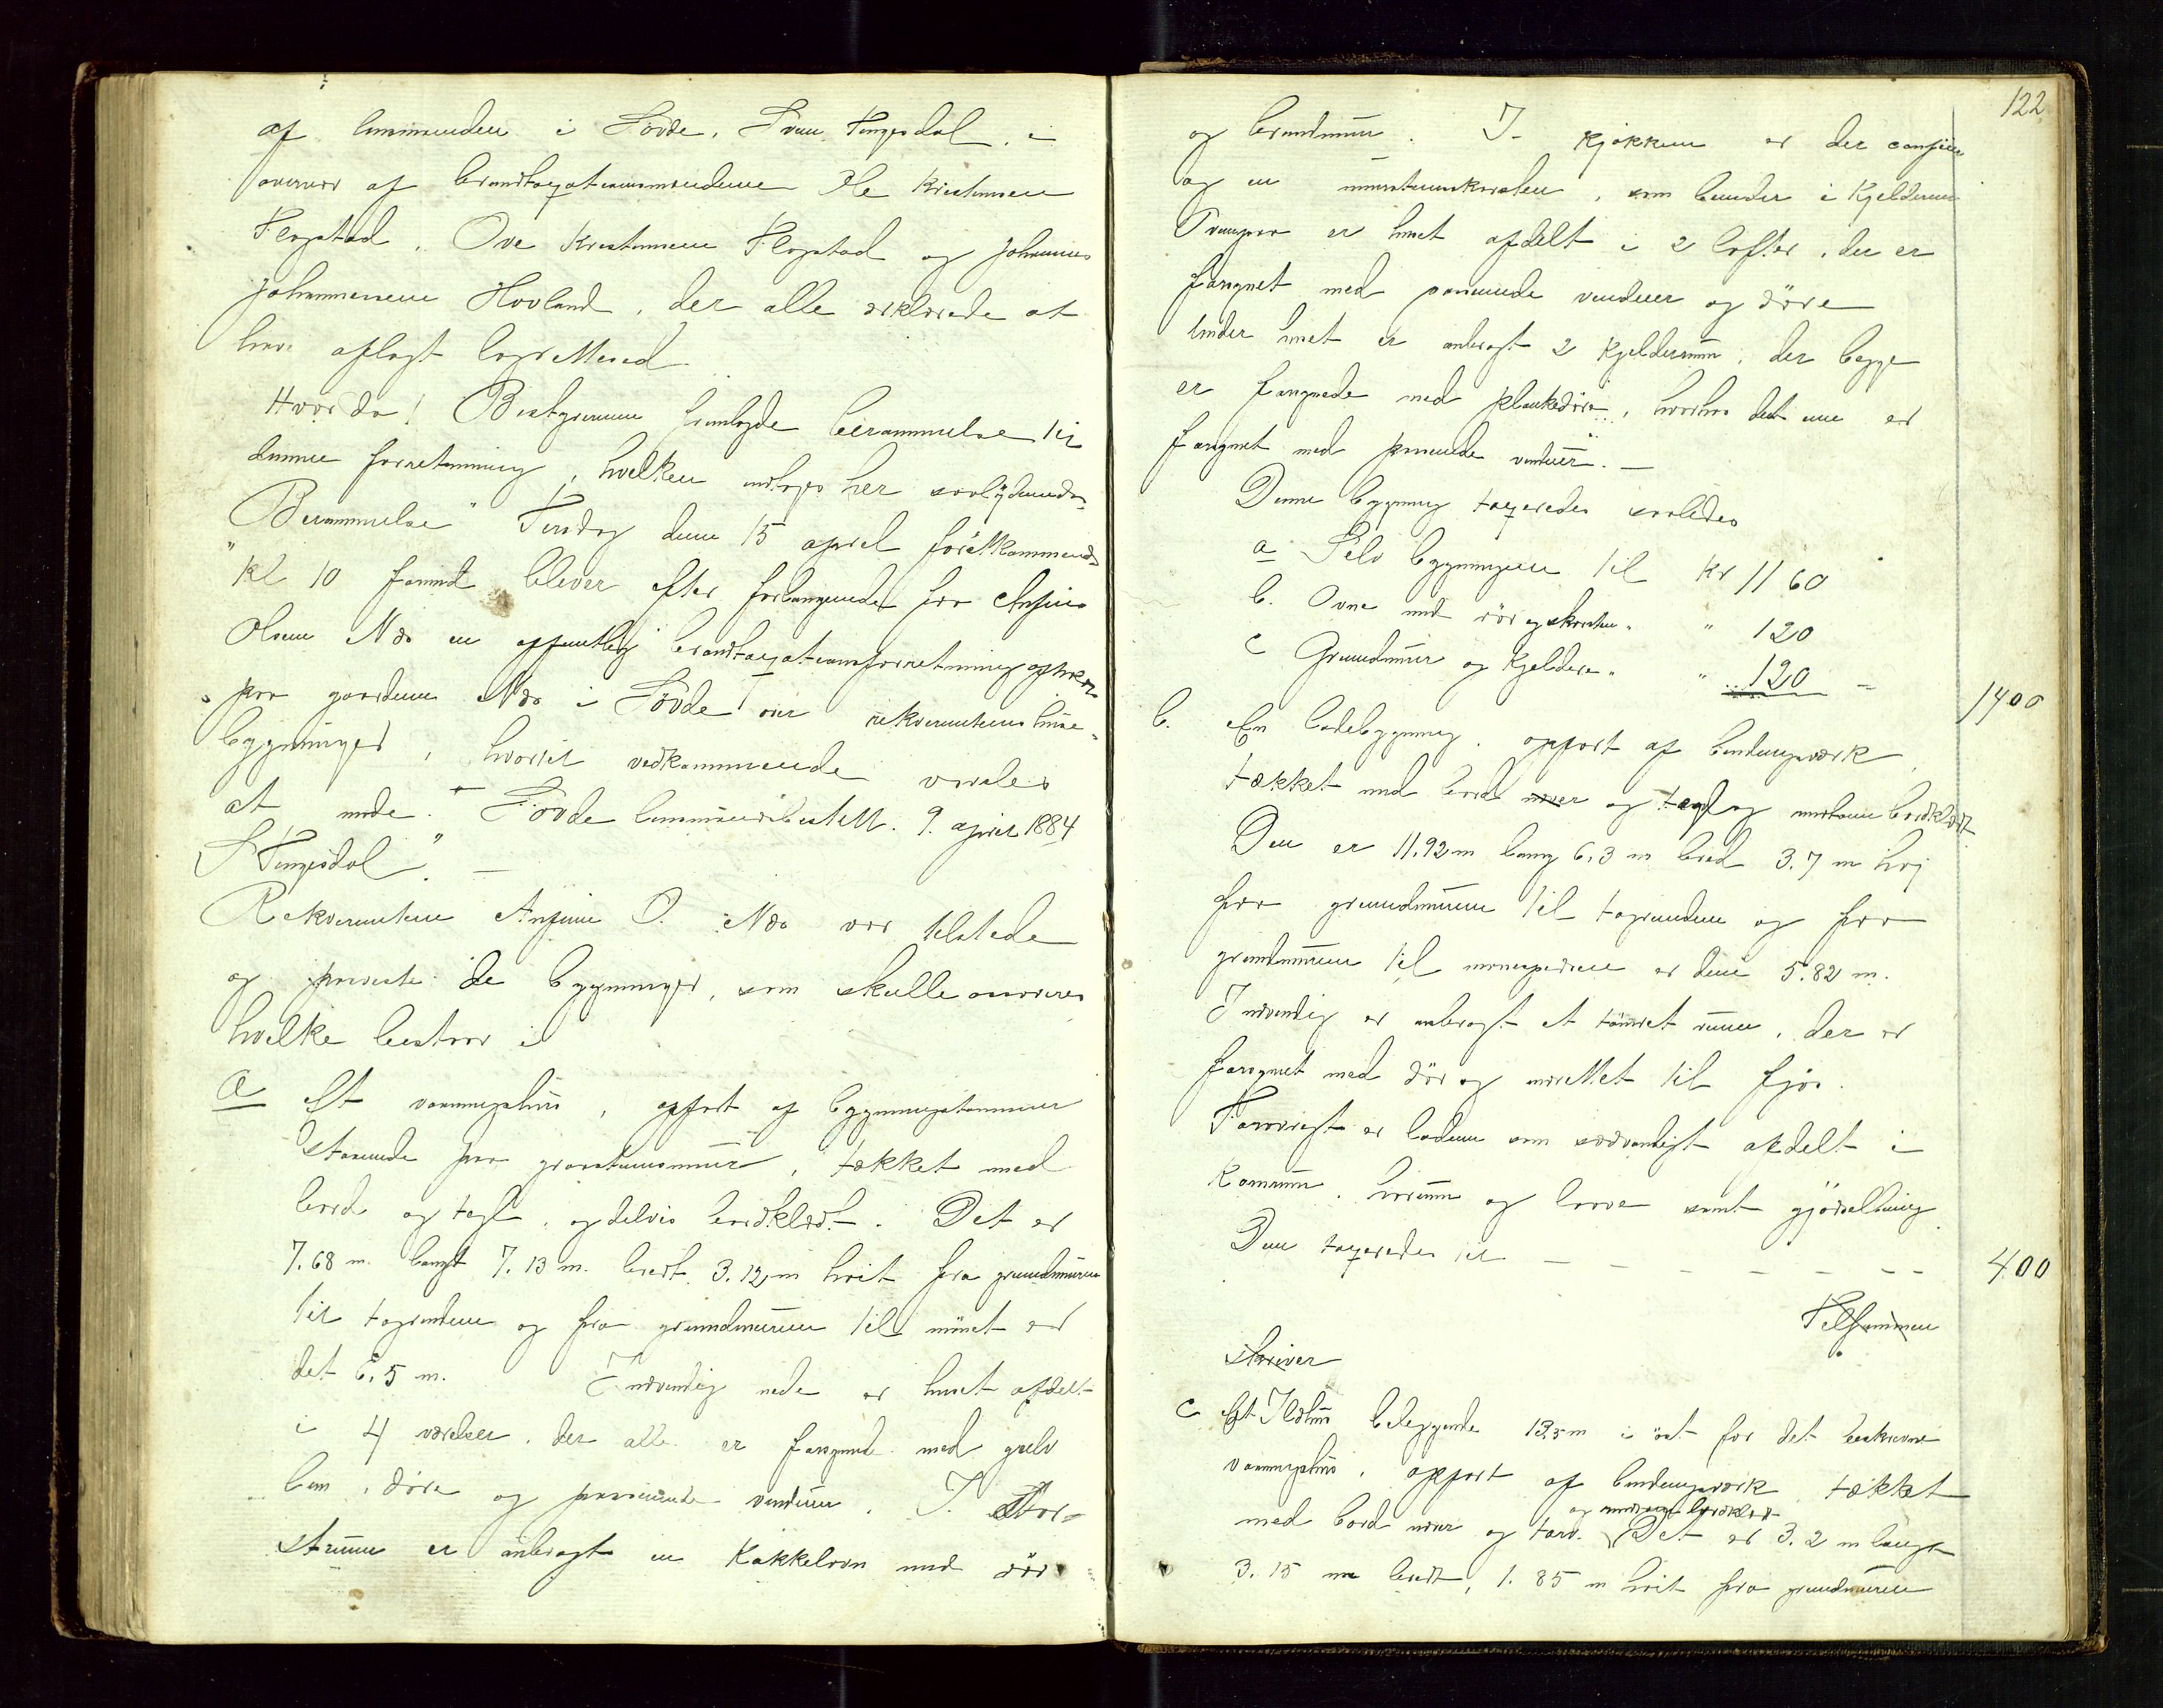 af lensmanden i Søvde, Sven Tengesdal, i
overvær af brandtaxationsmændene Ole Kristensen
Flogstad, Ove Kristensen Flogstad og Johannes
Johannessen Hovland, der alle erklærede at
have aflagt lagretteed.
Hvorda! Bestyreren fremlagde berammelse til
denne forretning, hvilken indtages her saalydende
Berammelse "Tirsdag den 15 april førstkommende
" kl 10 formd bliver efter forlangende fra Anfin
Olsen Næs en offentlig brandtaxationsforretning afholdt
paa gaarden Næs i Søvde over rekvirentens huse-
bygninger, hvortil vedkommende varsles
at møde. Søvde lensmandsbestill. 9. april 1884
S Tengesdal". —
Rekvirenten Anfin O. Næs var tilstede
og paaviste de bygninger, som skulle assureres
hvilke bestaar i
a Et vaaningshus, opført af bygningstømmer
staaende paa graastensmur, tækket med
bord og tegl, og delvis bordklædt. Det er
7.68 m. langt 7.13 m. bredt 3.12 m høit fra grundmuren
til tagrenden og fra grundmuren til mønet er
det 6.5 m. Indvendig nede er huset afdelt
i 4 værelser, der alle er forsynede med gulv
lem, døre og passende vinduer. I Stor-
stuen er anbragt en Kakkelovn med rør
122
og brandmur. I kjøkken er der komfur
og en murstensskorsten, som begynder i Kjelderen
Ovenpaa er huset afdelt i 2 lofter, der er
forsynet med passende vinduer og døre
Under huset er anbragt 2 kjelderrum, der begge
er forsynede med plankedøre, hvorhos det ene er
forsynet med passende vinduer. —
Denne bygning taxeredes saaledes
a Selv bygningen til Kr 1160
b. Ovne med rør og skorsten " " 120
c Grundmur og Kjeldere " " 120 = 1400
b. En ladebygning, opført af bindingsværk
tækket med bord næver og tegl og udentil bordklædt
Den er 11.92 m lang 6.3 m bred 3.7 m høi
fra grundmuren til tagrenden og fra
grundmuren til mønespidsen er den 5.82 m.
Indvendig er anbragt et tømret rum, der er
forsynet med dør og indrettet til fjøs.
Forøvrigt er laden som sædvanligt afdelt i
kornrum, hørum og laave samt gjødselbing
Den taxeredes til — — — — — — — 400
Tilsammen
skriver
c Et Ildhus beliggende 13.5 m i øst for det beskrevne
vaaningshus, opført af bindingsværk tækket
og udvendigt bordklædt
med bord næver og torv. Det er 3.2 m langt
3.15 m bredt, 1.85 m høit fra grundmuren